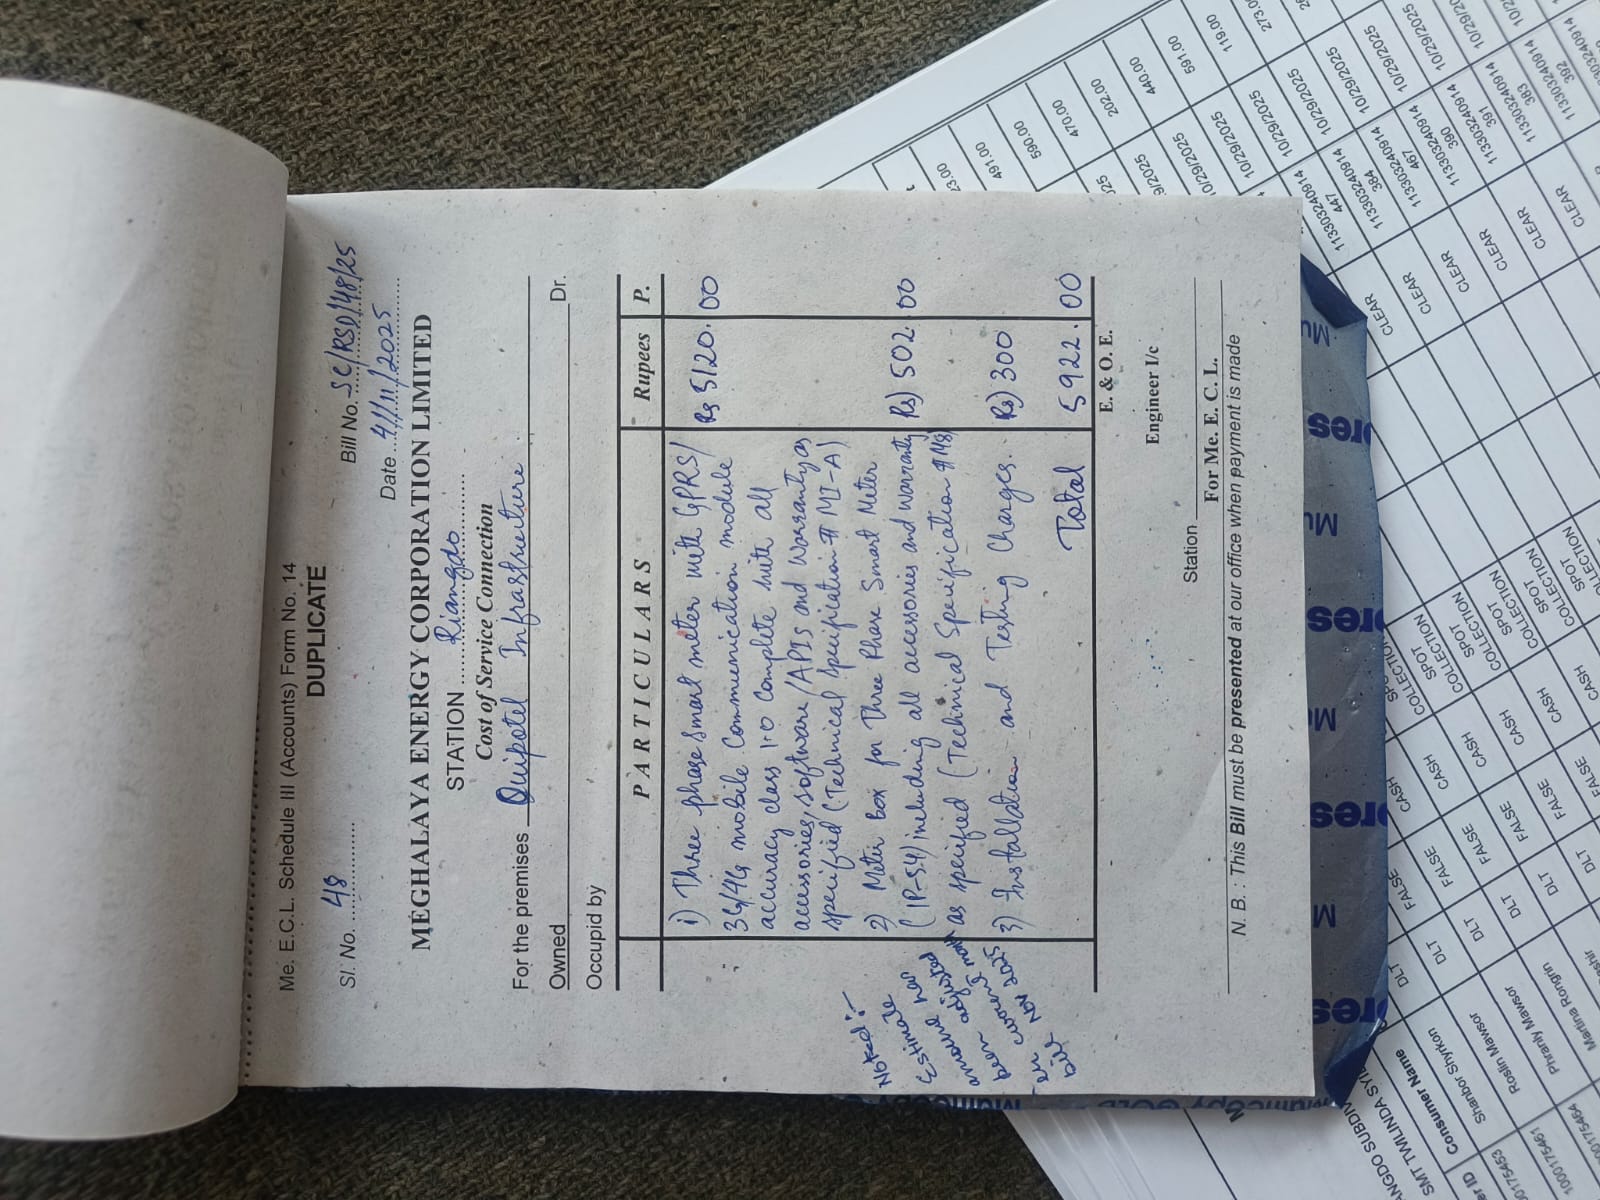 Me. E.C.L. Schedule III (Accounts) Form No. 14
DUPLICATE
Sl. No. 48
Bill No. SC/RSD/48/25
Date 4/11/2025
MEGHALAYA ENERGY CORPORATION LIMITED
STATION Riangdo
Cost of Service Connection
For the premises Quipotel Infrastructure
Owned Dr.
Occupid by
PARTICULARS Rupees P.
1) Three phase smart meter with GPRS/ Rs 5120.00
3G/4G mobile Communication module
accuracy class 1.0 Complete with all
accessories, software/APIs and Warranty as
specified (Technical Specification # MI-A)
2) Meter box for Three Phase Smart Meter Rs) 502.00
(IP-54) including all accessories and warranty
as specified (Technical Specification # M8)
3) Installation and Testing Charges. Rs) 300
Total 5922.00
Noted:-
Estimate
amount has
been adjusted
in current month
Nov 2025
bill
E. & O. E.
Engineer I/c
Station
For Me. E. C. L.
N. B. : This Bill must be presented at our office when payment is made
SMT TWILINDA
Consumer Name
Shanbor Shyrkon
Roslin Mawsor
Phranly Mawsor
Martina Rongrin
DLT FALSE CASH SPOT COLLECTION CLEAR
DLT FALSE CASH SPOT COLLECTION CLEAR
DLT FALSE CASH SPOT COLLECTION CLEAR
DLT FALSE CASH SPOT COLLECTION CLEAR
10/29/2025
491.00
590.00
470.00
202.00
440.00
591.00
119.00